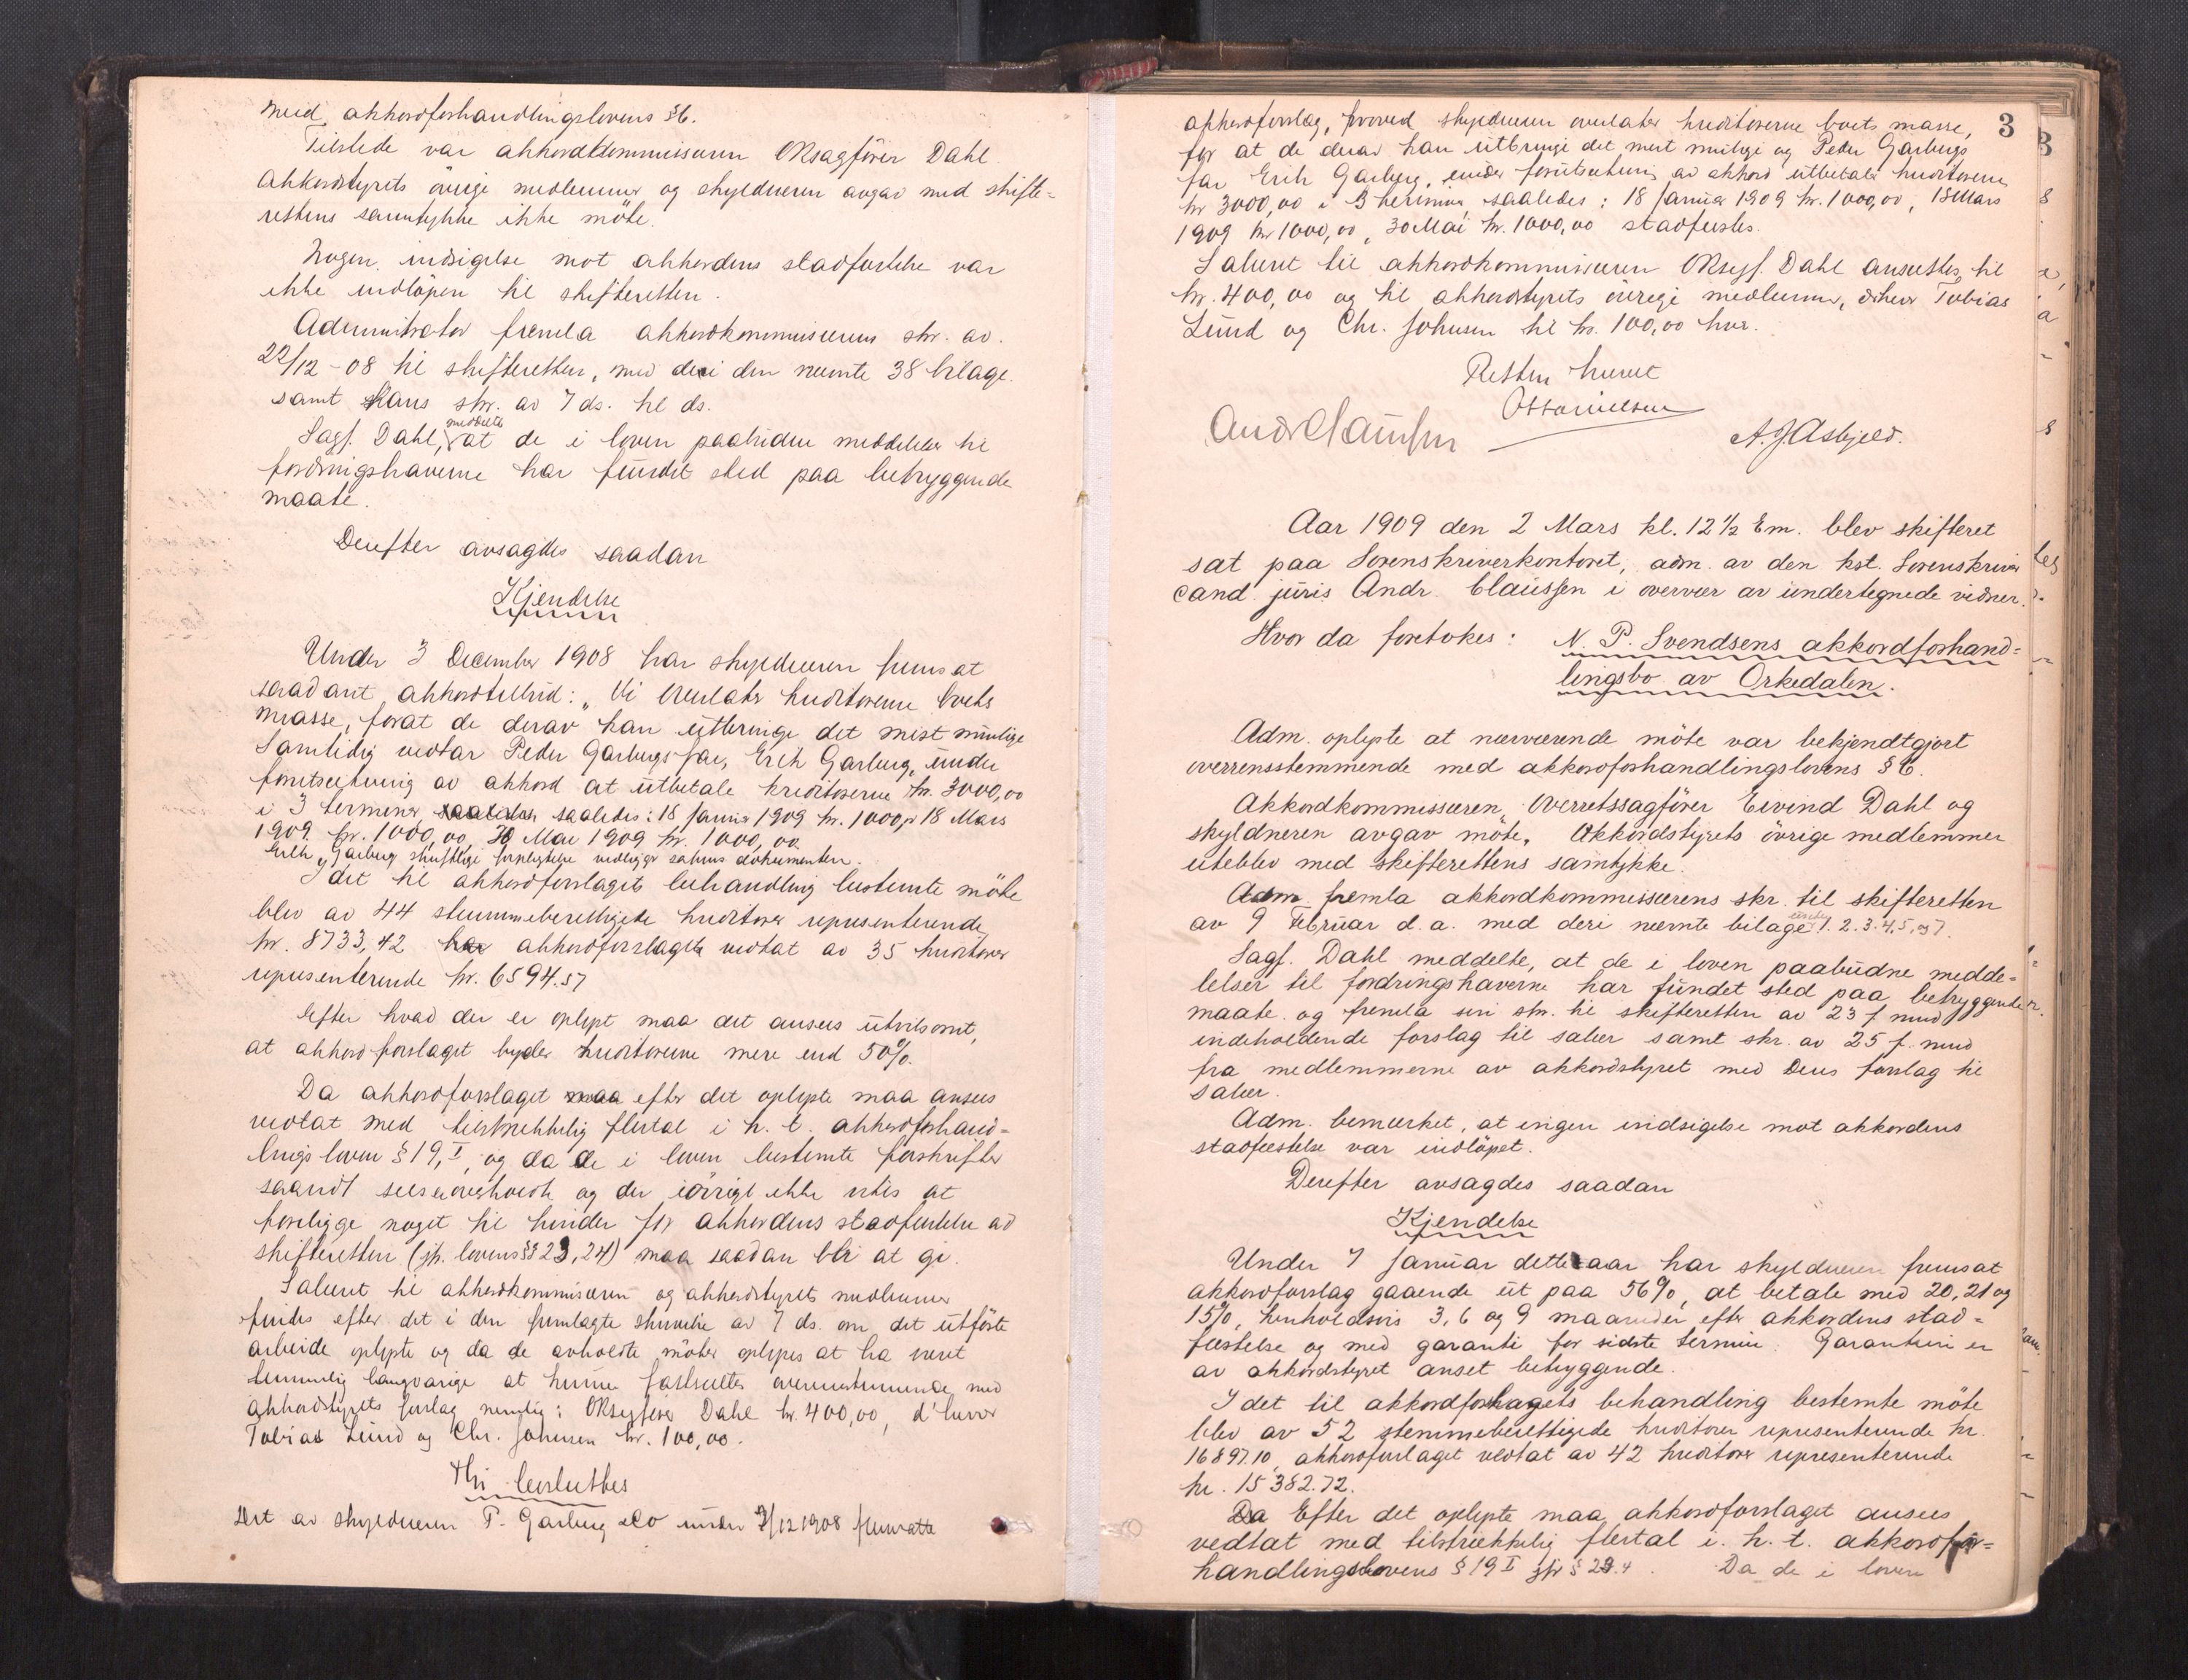 med akkordforhandlingslovens § 6.
Tilstede var akkordkommissæren ORsagfører Dahl.
Akkordstyrets övrige medlemmer og skyldneren avgav med skifte=
rettens samtykke ikke möte.
Nogen indsigelse mot akkordens stadfæstelse var
ikke indlöpen til skifteretten.
Administrator fremla akkordkommissærens skr. av
22/12-08 til skifteretten, med deri den nævnte 38 bilage
samt Hans skr. av 7 ds. til ds.
Sagf. Dahl, meddelte at de i loven paabudne meddelelser til
fordringshaverne har fundet sted paa betryggende
maate.
Derefter avsagdes saadan
Kjendelse
Under 3 December 1908 har skyldneren fremsat
saadant akkordtilbud: "Vi overlater kreditorerne boets
masse, forat de derav kan utbringe det mest mulige
Samtidig vedtar Peder Garbergs far, Erik Garberg, under
forutsætning av akkord at utbetale kreditorerne kr. 3000,00
i 3 terminer, saaledes: 18 Januar 1909 kr. 1000, 18 Mars
1909 kr. 1000,00, 30 Mai 1909 kr. 1000,00
Erik Garberg skriftlige forpligtelse vedligger sakens dokumenter.
I det til akkordforslagets behandling bestemte möte
blev av 44 stemmeberettigede kreditorer representerende
kr. 8733,42 akkordforslaget vedtat av 35 kreditorer
representerende kr. 6594.57
Efter hvad der er oplyst maa det ansees utvilsomt,
at akkordforslaget byder kreditorerne mere end 50%.
Da akkordforslaget efter det oplyste maa ansees
vedtat med tilstrækkelig flertal i h. t. akkordforhand=
lingsloven § 19, I, og da de i loven bestemte forskrifter
saavidt sees er overholdt og der iövrigt ikke vites at
foreligge noget til hinder for akkordens stadfæstelse av
skifteretten (jfr. lovens §§ 23, 24) maa saadan bli at gi.
Salæret til akkordkommissæren og akkordstyrets medlemmer
findes efter det i den fremlagte skrivelse av 7 ds. om det utförte
arbeide oplyste og da de avholdte möter oplyses at ha været
temmelig langvarige at kunne fastsættes overensstemmende med
akkordstyrets forslag nemlig: ORsagförer Dahl kr. 400,00, d'herrer
Tobias Lund og Chr. Johnsen kr. 100,00.
Thi besluttes
Det av skyldneren P. Garberg & Co under 3/12 1908 fremsatte
3
akkordforslag, hvorved skyldneren overlater kreditorerne boets masse,
for at de derav kan utbringe det mest mulige og Peder Garbergs
far Erik Garberg, under forutsætning av akkord utbetaler kreditorerne
kr 3000,00 i 3 terminer, saaledes: 18 Januar 1909 kr. 1000,00, 18 Mars
1909 kr 1000,00, 30 Mai kr. 1000,00 stadfæstes.
Salæret til akkordkommissæren ORsagf. Dahl ansættes til
kr. 400,00 og til akkordstyrets övrige medlemmer, d'herr Tobias
Lund og Chr. Johnsen til kr. 100,00 hver.
Retten hævet
Otto Nielsen
Andr Claussen
Aar 1909 den 2 Mars kl. 12 1/2 Em. blev skifteret
sat paa Sorenskriverkontoret, adm. av den kst. Sorenskriver
cand. juris Andr. Claussen i overvær av undertegnede vidner.
Hvor da foretokes: N. P. Svendsens akkordforhand=
lingsbo av Orkedalen.
Adm. oplyste at nærværende möte var bekjendtgjort
overrensstemmende med akkordforhandlingslovens § 6.
Akkordkommissæren, Overretssagförer Eivind Dahl og
skyldneren avgav möte. Akkordstyrets övrige medlemmer
uteblev med skifterettens samtykke.
Adm fremla akkordkommissærens skr. til skifteretten
av 9 Februar d. a. med deri nævnte bilage 1. 2. 3. 4. 5. og 7.
Sagf. Dahl meddelte, at de i loven paabudne medde=
lelser til fordringshaverne har fundet sted paa betryggende
maate. og fremla sin skr. til skifteretten av 23 f. mnd
indeholdende forslag til salær samt skr. av 25 f. mnd
fra medlemmerne av akkordstyret med deres forslag til
salær.
Adm. bemærket, at ingen indsigelse mot akkordens
stadfæstelse var indlöpet.
Derefter avsagdes saadan
Kjendelse
Under 7 Januar dette aar har skyldneren fremsat
akkordforslag gaaende ut paa 56%, at betale med 20, 21 og
15%, henholdsvis 3, 6 og 9 maaneder efter akkordens stad=
fæstelse og med garanti for sidste termin. Garantien er
av akkordstyret anset betryggende.
I det til akkordforslagets behandling bestemte möte
blev av 52 stemmeberettigede kreditorer representerende kr.
16897.10, akkordforslaget vedtat av 42 kreditorer representerende
kr. 15382.72.
Efter det oplyste maa akkordforslaget ansees
vedtat med tilstrækkelig flertal i. h. t. akkordfor=
handlingslovens § 19 I jfr § 23.4. Da de i loven